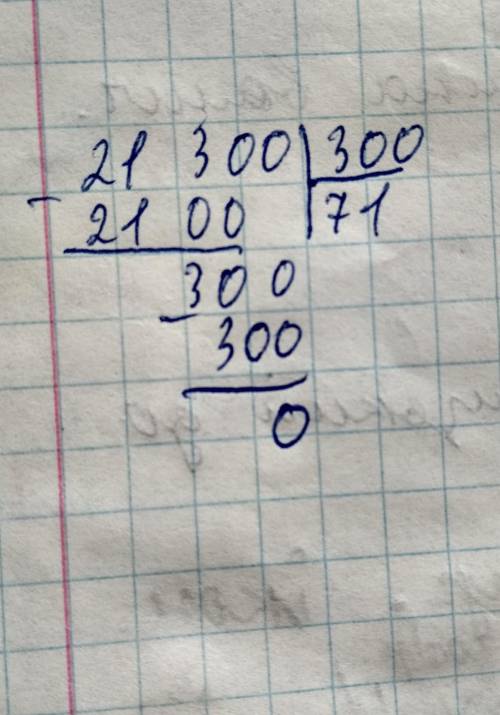 21 300 | 300
- 21 00 | 71
300
- 300
0